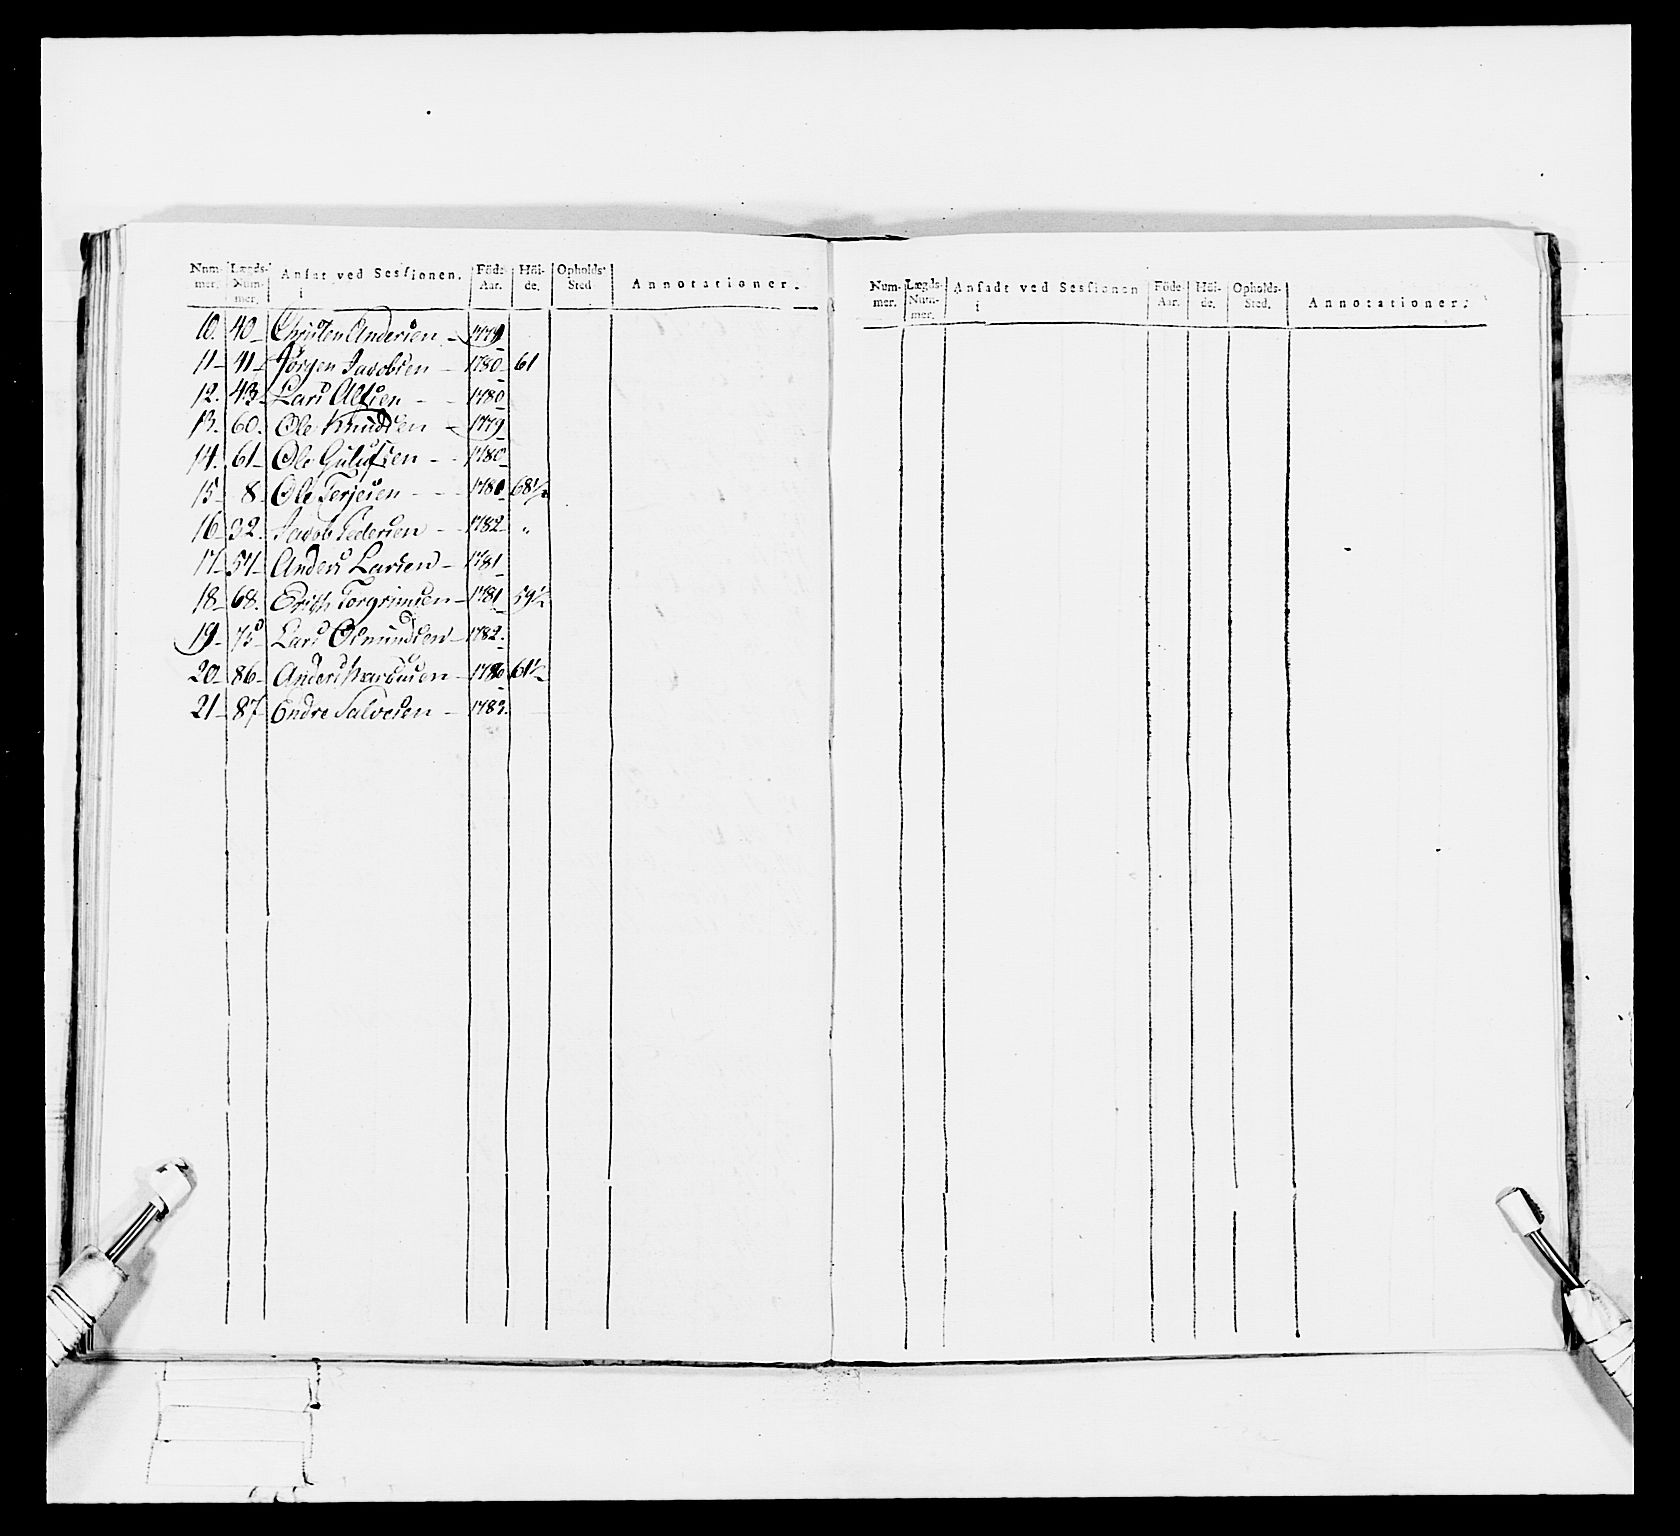 Num- Lægds- Ansat ved Sessionen. Föde- Höi- Opholds-
mer. Num- i Aar. de. Sted Annotationer.
mer.
10. 40 Christen Andersen 1779
11 41 Jörgen Jacobsen 1780 61
12. 43 Lars 1780
13. 60. Ole Knudsen 1779
14. 61 Ole Gulufsen 1780
15 8 Ole Terjesen 1780 68½
16 32. Jacob Pedersen 1782 "
17 57 Anders Larsen 1781
18 68. Erich Torgrimsen 1781 59½
19 75 Lars Osmundsen 1782.
20 86 Anders 1780 61½
21 87 Endre Salvesen 1782.
Num- Lægds- Ansadt ved Sessionen Föde- Höi- Opholds-
mer. Num- i Aar. de. Sted. Annotationer.
mer.